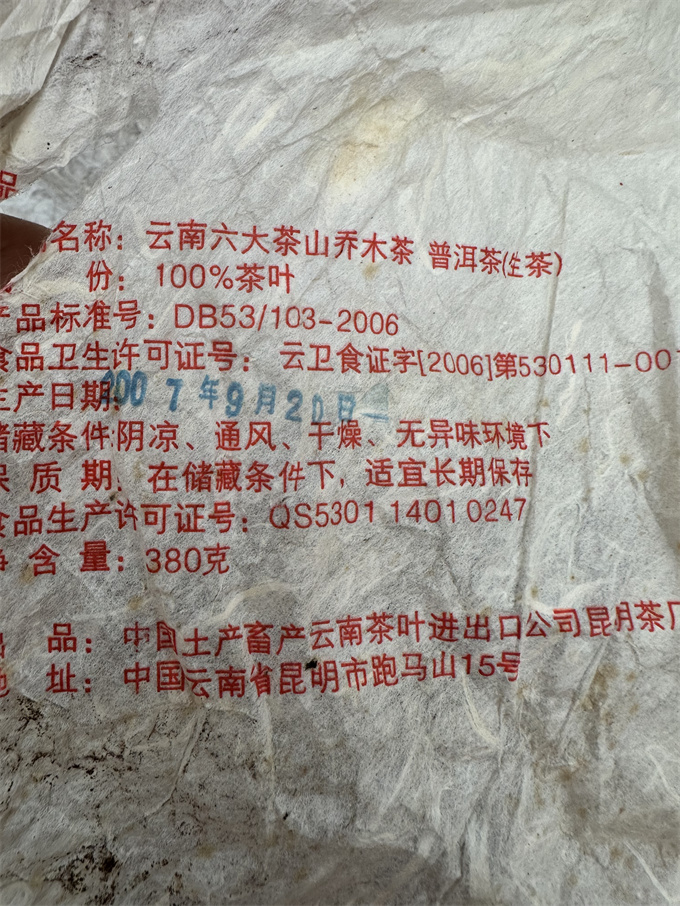 品
名称：云南六大茶山乔木茶 普洱茶(生茶)
份：100%茶叶
产品标准号：DB53/103-2006
食品卫生许可证号：云卫食证字[2006]第530111-00
生产日期：2007年9月20日
储藏条件：阴凉、通风、干燥、无异味环境下
保质期：在储藏条件下，适宜长期保存
食品生产许可证号：QS5301 1401 0247
净含量：380克
出品：中国土产畜产云南茶叶进出口公司昆明茶厂
地址：中国云南省昆明市跑马山15号